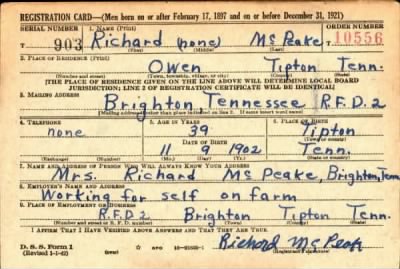 REGISTRATION CARD—(Men born on or after February 17, 1897 and on or before December 31, 1921)
SERIAL NUMBER 1. NAME (Print) ORDER NUMBER
T 903 Richard (none) McPeake 10556
(First) (Middle) (Last)
2. PLACE OF RESIDENCE (Print)
Owen Tipton Tenn.
(Number and street) (Town, township, village, or city) (County) (State)
[THE PLACE OF RESIDENCE GIVEN ON THE LINE ABOVE WILL DETERMINE LOCAL BOARD
JURISDICTION; LINE 2 OF REGISTRATION CERTIFICATE WILL BE IDENTICAL]
3. MAILING ADDRESS
Brighton, Tennessee R.F.D.2
[Mailing address if other than place indicated on line 2. If same insert word same]
4. TELEPHONE 5. AGE IN YEARS 6. PLACE OF BIRTH
none 39 Tipton
DATE OF BIRTH (Town or county)
11 9 1902 Tenn.
(Exchange) (Number) (Mo.) (Day) (Yr.) (State or country)
7. NAME AND ADDRESS OF PERSON WHO WILL ALWAYS KNOW YOUR ADDRESS
Mrs. Richard McPeake, Brighton, Tenn
8. EMPLOYER'S NAME AND ADDRESS
Working for self on farm
9. PLACE OF EMPLOYMENT OR BUSINESS
R.F.D.2 Brighton Tipton Tenn.
(Number and street or R. F. D. number) (Town) (County) (State)
I AFFIRM THAT I HAVE VERIFIED ABOVE ANSWERS AND THAT THEY ARE TRUE.
D. S. S. Form 1
(Revised 1-1-42) (over) GPO Richard McPeak